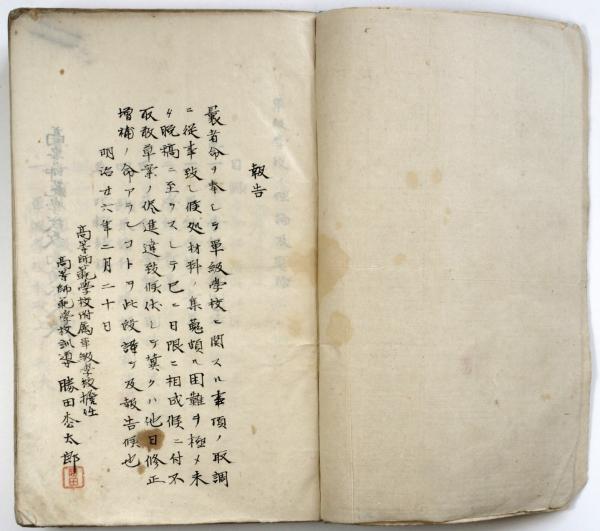 報告
曩者命ヲ奉シテ單級學校ニ関スル事項ノ取調
ニ従事致シ候処材料ノ集蒐頗ル困難ヲ極メ未
タ脱稿ニ至ラスシテ已ニ日限ニ相成候ニ付不
取敢草案ノ侭進達致候伏シテ冀クハ他日修正
増補ノ命アランコトヲ此段謹テ及報告候也
明治廿六年二月二十日
高等師範學校附属単級學校擔任
高等師範學校訓導 勝田枩太郎